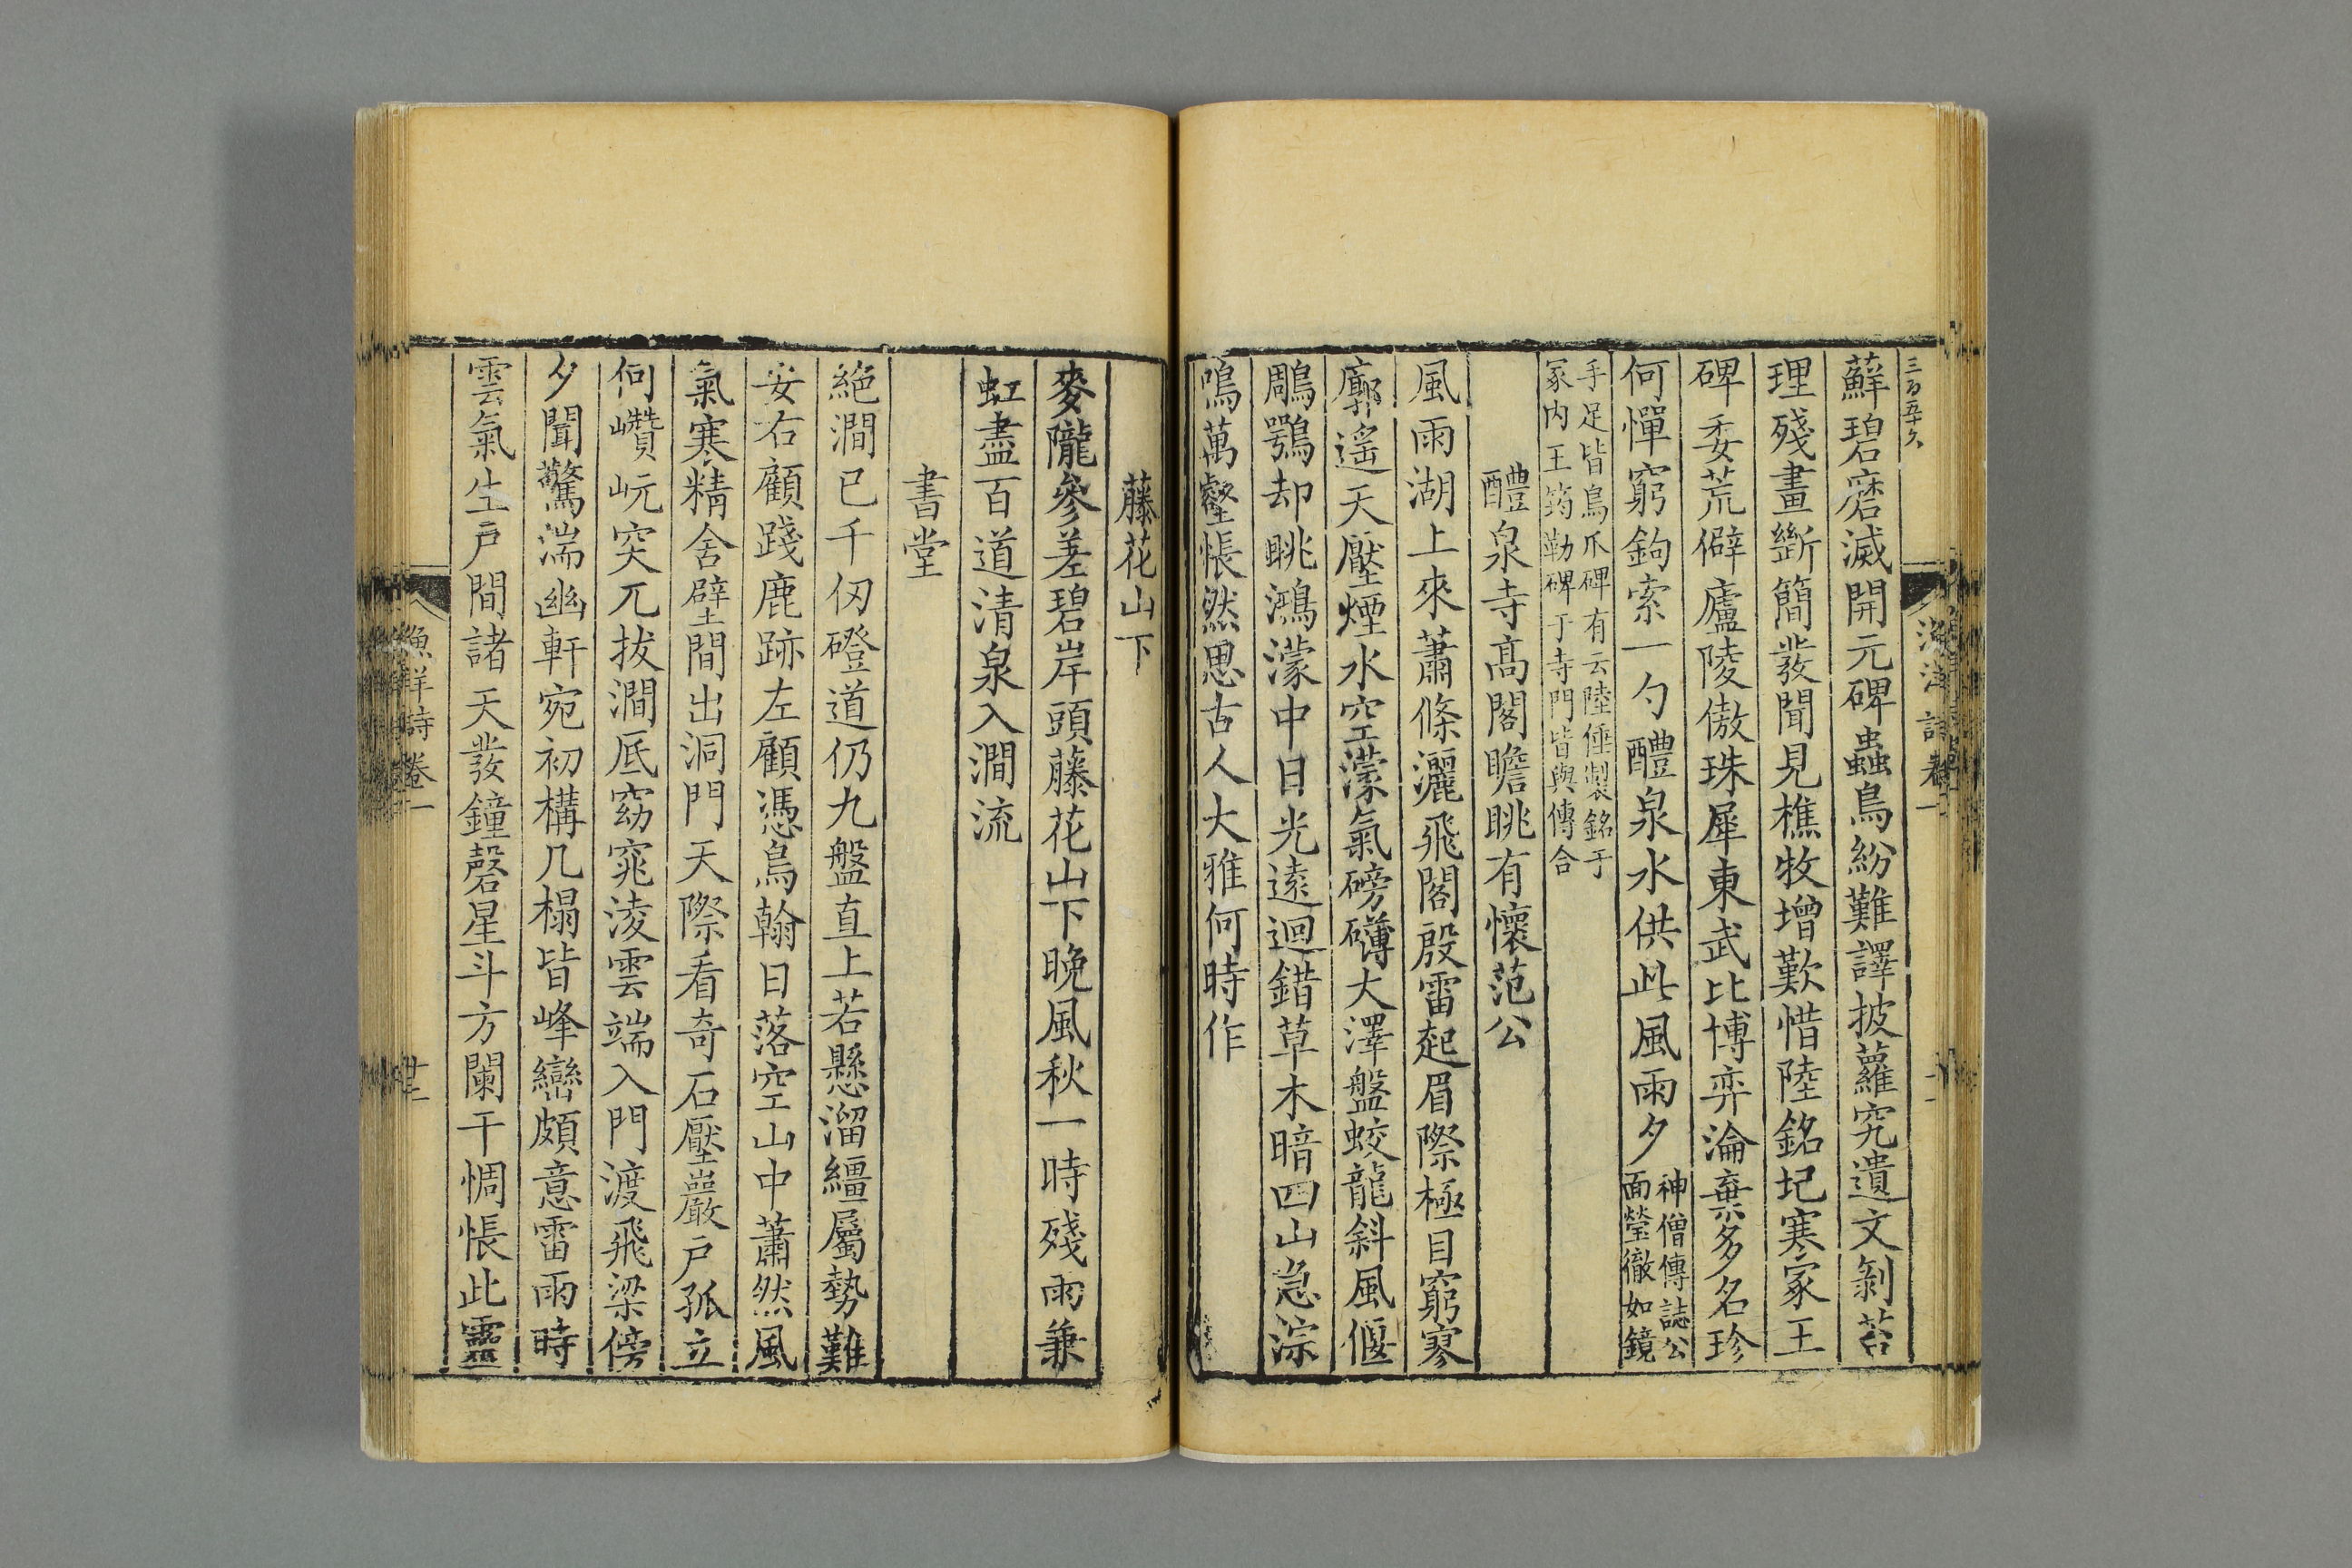 三百五十六
蘚碧磨滅開元碑蟲鳥紛難譯披蘿究遺文剝苔
理殘畫斷簡發聞見樵牧增歎惜陸銘圮寒冢王
碑委荒僻廬陵傲珠犀東武比博弈淪棄多名珍
何憚窮鉤索一勺醴泉水供此風雨夕神僧傳誌公
面瑩徹如鏡
手足皆鳥爪碑有云陸倕製銘于
冢內王筠勒碑于寺門皆與傳合
醴泉寺高閣瞻眺有懷范公
風雨湖上來蕭條灑飛閣殷雷起眉際極目窮寥
廓遥天壓煙水空濛氣磅礴大澤盤蛟龍斜風偃
鵰鶚却眺鴻濛中日光遠迴錯草木暗四山急淙
鳴萬壑悵然思古人大雅何時作
藤花山下
麥隴參差碧岸頭藤花山下晚風秋一時殘雨兼
虹盡百道清泉入澗流
書堂
絶澗已千仞磴道仍九盤直上若懸溜繮屬勢難
安右顧踐鹿跡左顧憑鳥翰日落空山中蕭然風
氣寒精舍壁間出洞門天際看奇石壓巖戶孤立
何巑岏突兀拔澗底窈窕淩雲端入門渡飛梁傍
夕聞驚湍幽軒宛初構几榻皆峰巒頗意雷雨時
雲氣生戶間諸天發鐘磬星斗方闌干惆悵此靈
漁洋詩卷一
廿二